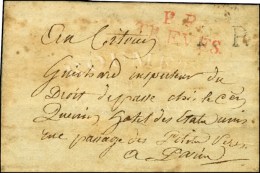 P.P.
TREVES
R
Au Citoien
Guichard inspecteur du
Droit de passe chez le Cen
hotel des Etats unis
rue passage des Petits Peres
a Paris